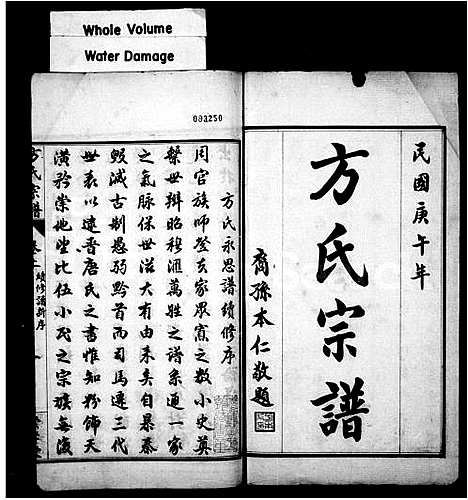 Whole Volume
Water Damage
003250
民國庚午年
方氏宗譜
裔孫本仁敬題
方氏永思譜續修序
周官族師登夫家眾寡之數小史奠
繫世辨昭穆滙萬姓之譜系通一家
之氣脉保世滋大有由來矣自暴秦
毀滅古制愚弱黔首而司馬遷三代
世表以逮晉唐氏之書惟知粉飾天
潢矜崇地望比伍小民之宗族每後
方氏宗譜
卷一
續修譜新序
一